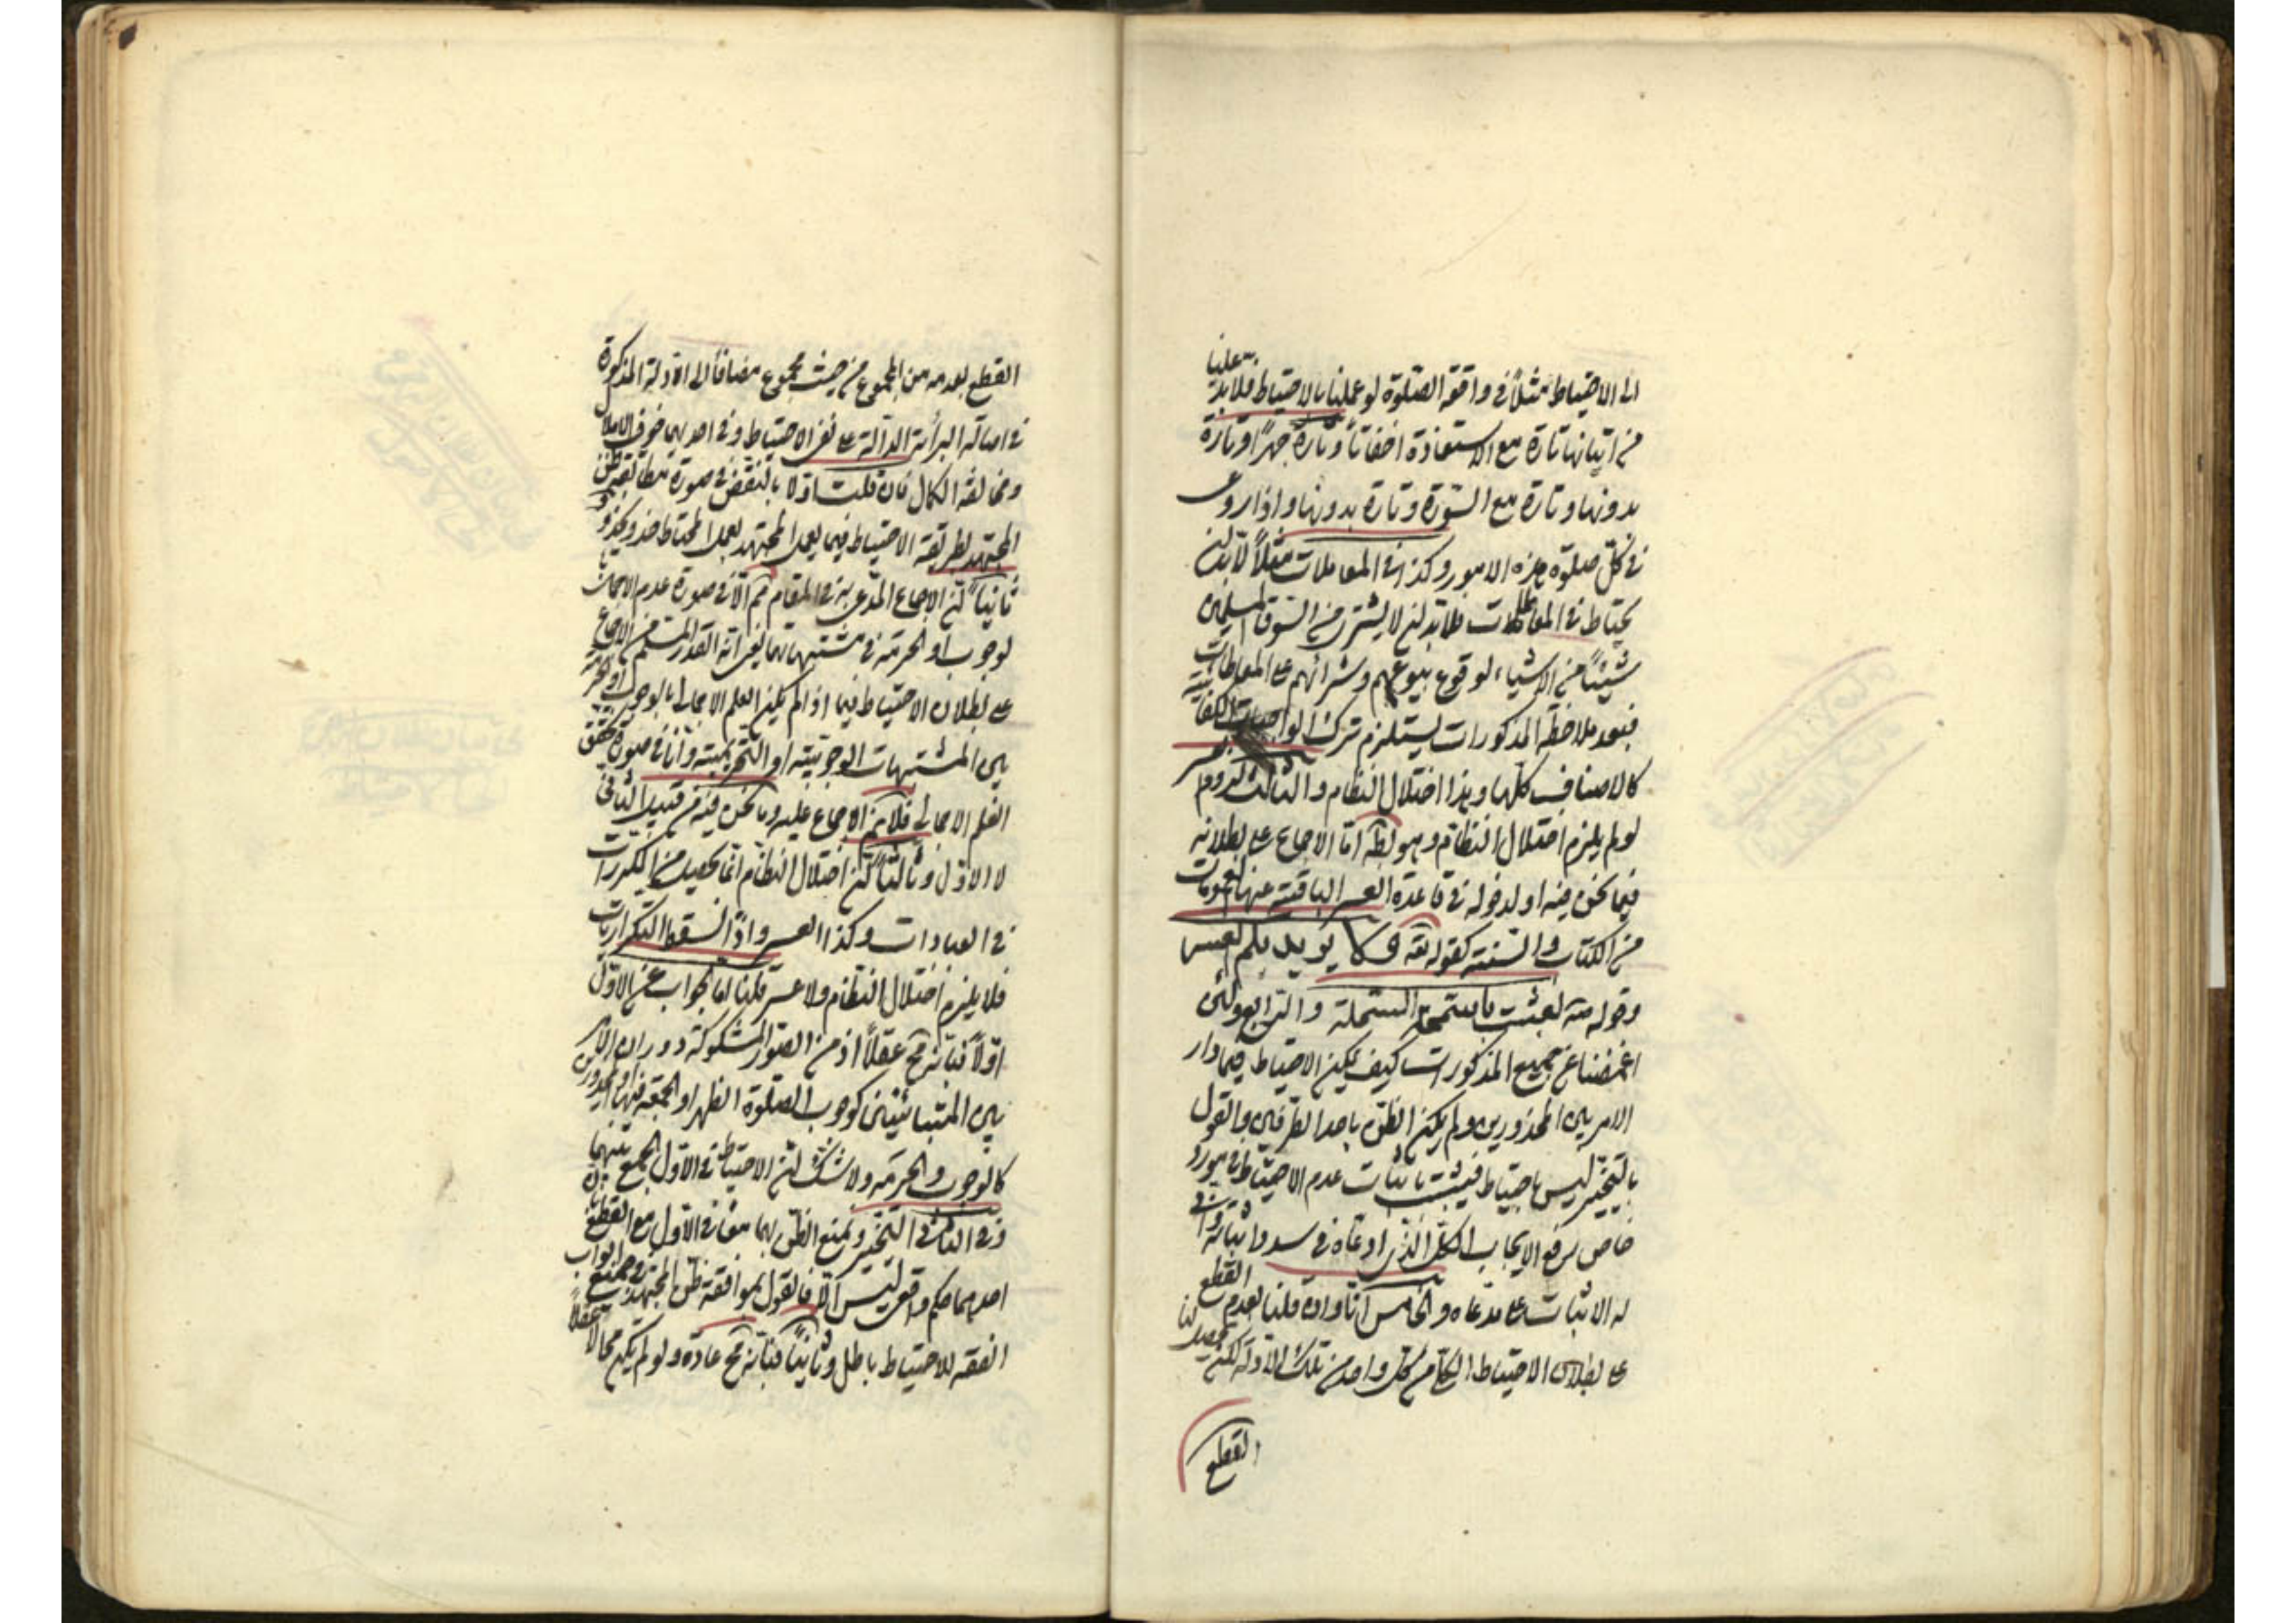 الى الاحتياط مثلاً فى واقعة الصلوة لو عملنا بالاحتياط فلابد علينا
من اتيانها تارة مع الاستعاذة اخفاتاً وتارة جهراً وتارة
بدونها وتارة مع السورة وتارة بدونها واذا روعى
فى كل صلوة هذه الامور وكذا فى المعاملات مثلاً لابد ان
يحتاط فى المعاملات فلابد ان لا يشترى من السوق المسلمين
شيئاً من الاشياء لوقوع بيوعهم وشرائهم على المعاطات
فبعد ملاحظة المذكورات يستلزم ترك الواجبات الكفائية
كالاصناف كلها وهذا اختلال النظام والثالث لزوم العسر
لو لم يلزم اختلال النظام وهو بط اما الاجماع على بطلانه
فيما نحن فيه او لدخوله فى قاعدة العسر الباقية عنها العمومات
من الكتاب والسنة كقوله تع ولا يريد بكم العسر
وقوله ص بعثت بالسمحة السهلة والرابع ولئن
اغمضنا عن جميع المذكورات كيف يمكن الاحتياط فيما دار
الامر بين المحذورين ولم يكن الظن باحد الطرفين والقول
بالتخيير ليس باحتياط فيثبت باثبات عدم الاحتياط فى مورد
خاص رفع الايجاب الكلى الذى ادعاه فى سد واثباته وانى
له الاثبات على مدعاه والخامس انا وان قلنا بعدم القطع
على بطلان الاحتياط الكلى من كل واحد من تلك الادلة لكن يحصل لنا
القطع
القطع بعدمه من المجموع من حيث مجموع مضافاً الى الادلة المذكورة
فى اصالة البرائة الدالة على نفى الاحتياط وفى احديهما خوف الاملال
ومخالفة الكمال فان قلت اولا بالنقض فى صورة مطابقة ظن
المجتهد لطريقة الاحتياط فيما يعمل المجتهد يعمل المحتاط حذو بحذو
ثانياً ان الاجماع المدعى به فى المقام مم الا فى صورة عدم الاجمال
لوجوب او الحرمة فى مشتبهاتهما يعنى انه القدر المسلم من الاجماع
على بطلان الاحتياط فيما اذا لم يكن العلم الاجمالى بالوجوب او الحرمة
بين المشتبهات الوجوبية او التحريمية واما فى صورة تحقق
العلم الاجمالى فلا نم الاجماع عليه وما نحن فيه من قبيل الثانى
لا الاول وثالثاً ان اختلال النظام انما يحصل من المكررات
فى العبادات وكذا العسر واذا اسقط التكرارات
فلا يلزم اختلال النظام ولا عسر قلنا اما الجواب عن الاول
اولاً فبانه مح عقلاً اذ من الصور المشكوكة دوران الامر
بين المتباينين كوجوب الصلوة الظهر او الجمعة فيها او المحذورين
كالوجوب والحرمة ولا شك ان الاحتياط فى الاول الجمع بينهما
وفى الثانى التخيير ويمنع الظن بهما معا فى الاول مع القطع بان
احدهما حكم واقعى ليس الا فالقول بموافقة ظن المجتهد فى جميع ابواب
الفقه للاحتياط باطل وثانياً فبانه مح عادة ولو لم يكن محالا عقلاً